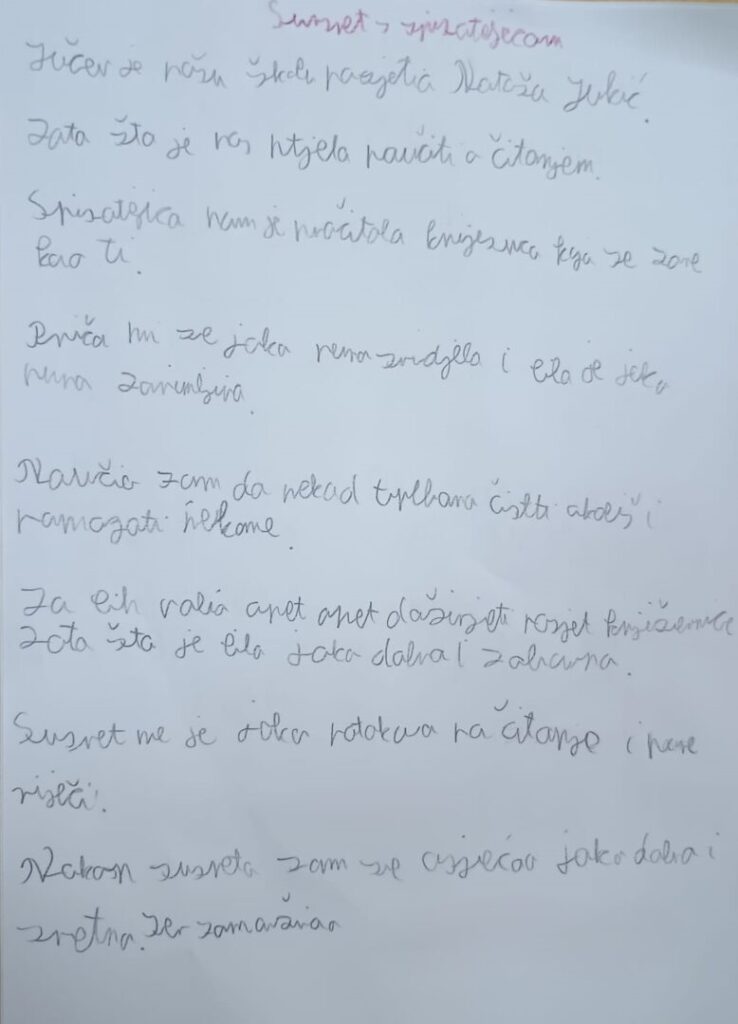 Susret s spisateljicom
Jučer je našu školu posjetia Nataša Jukić.
Zato što je nas htjela naučiti o čitanjem.
Spisateljica nam je pročitala knjigu koja se zove
kao ti.
Priča mi se jako
i bila je jako
zanimljiva.
Naučio sam da nekad
čistiti okoliš i
pomogati nekome.
Ja bih volio opet opet doživjeti posjet književnice
zato što je bila jako dobra i zabavna.
Susret me je jako potakao na čitanje i nove
riječi.
Nakon susreta sam se osjećao jako dobro i
sretno. Jer